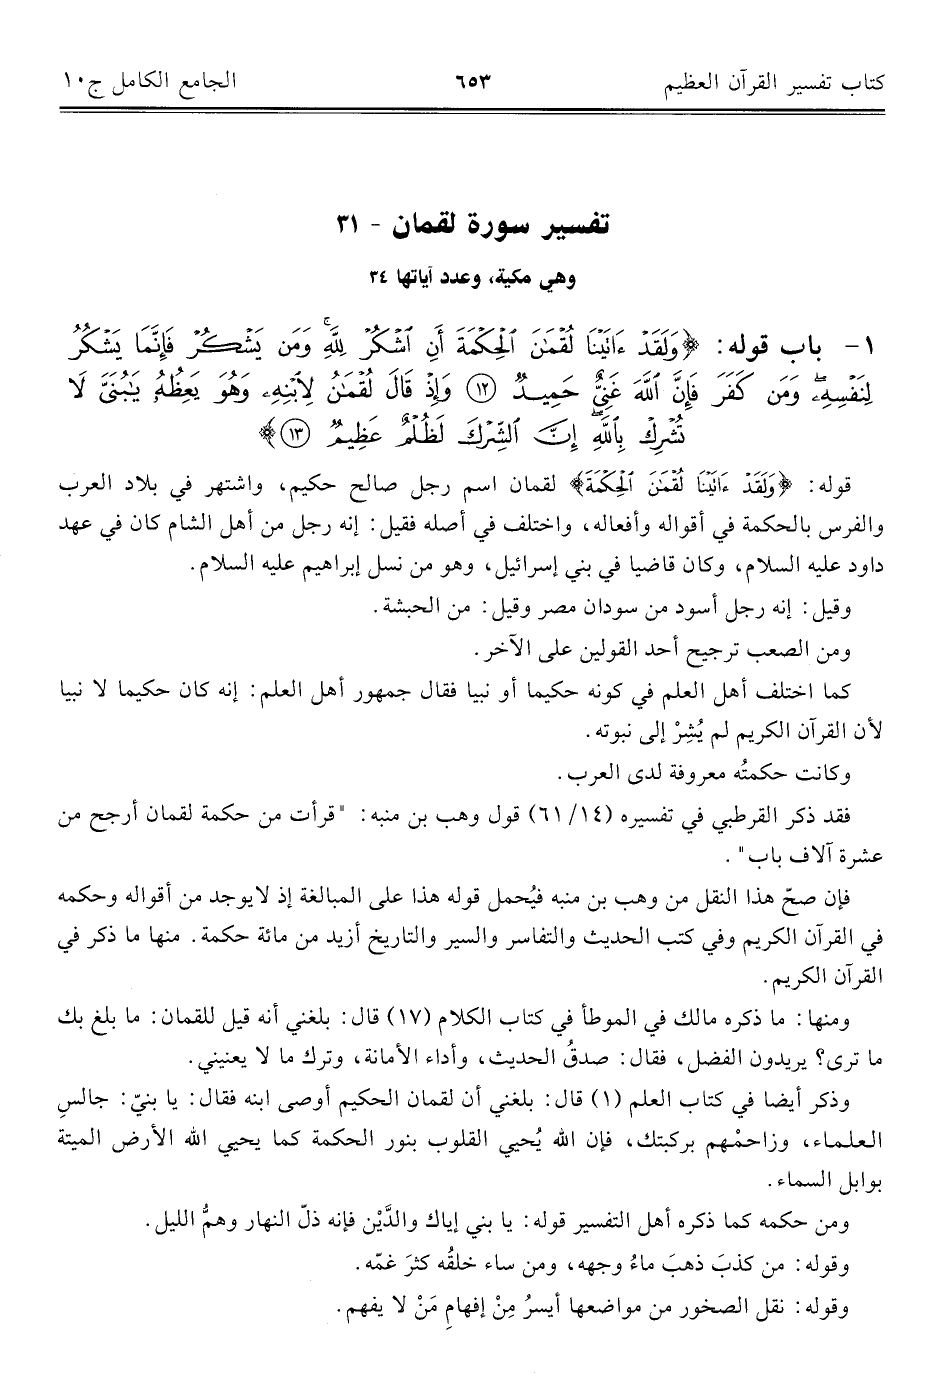 كتاب تفسير القرآن العظيم ٦٥٣ الجامع الكامل ج١٠
تفسير سورة لقمان - ٣١
وهي مكية، وعدد آياتها ٣٤
١- باب قوله: ﴿وَلَقَدْ ءَاتَيْنَا لُقْمَٰنَ ٱلْحِكْمَةَ أَنِ ٱشْكُرْ لِلَّهِ ۚ وَمَن يَشْكُرْ فَإِنَّمَا يَشْكُرُ
لِنَفْسِهِۦ ۖ وَمَن كَفَرَ فَإِنَّ ٱللَّهَ غَنِىٌّ حَمِيدٌ ﴿١٢﴾ وَإِذْ قَالَ لُقْمَٰنُ لِٱبْنِهِۦ وَهُوَ يَعِظُهُۥ يَٰبُنَىَّ لَا
تُشْرِكْ بِٱللَّهِ ۖ إِنَّ ٱلشِّرْكَ لَظُلْمٌ عَظِيمٌ ﴿١٣﴾﴾
قوله: ﴿وَلَقَدْ ءَاتَيْنَا لُقْمَٰنَ ٱلْحِكْمَةَ﴾ لقمان اسم رجل صالح حكيم، واشتهر في بلاد العرب
والفرس بالحكمة في أقواله وأفعاله، واختلف في أصله فقيل: إنه رجل من أهل الشام كان في عهد
داود عليه السلام، وكان قاضيا في بني إسرائيل، وهو من نسل إبراهيم عليه السلام.
وقيل: إنه رجل أسود من سودان مصر وقيل: من الحبشة.
ومن الصعب ترجيح أحد القولين على الآخر.
كما اختلف أهل العلم في كونه حكيما أو نبيا فقال جمهور أهل العلم: إنه كان حكيما لا نبيا
لأن القرآن الكريم لم يُشِرْ إلى نبوته.
وكانت حكمتُه معروفة لدى العرب.
فقد ذكر القرطبي في تفسيره (١٤/ ٦١) قول وهب بن منبه: "قرأت من حكمة لقمان أرجح من
عشرة آلاف باب".
فإن صحّ هذا النقل من وهب بن منبه فيُحمل قوله هذا على المبالغة إذ لايوجد من أقواله وحكمه
في القرآن الكريم وفي كتب الحديث والتفاسر والسير والتاريخ أزيد من مائة حكمة. منها ما ذكر في
القرآن الكريم.
ومنها: ما ذكره مالك في الموطأ في كتاب الكلام (١٧) قال: بلغني أنه قيل للقمان: ما بلغ بك
ما ترى؟ يريدون الفضل، فقال: صدقُ الحديث، وأداء الأمانة، وترك ما لا يعنيني.
وذكر أيضا في كتاب العلم (١) قال: بلغني أن لقمان الحكيم أوصى ابنه فقال: يا بنيّ: جالسِ
العلماء، وزاحمْهم بركبتك، فإن الله يُحيي القلوب بنور الحكمة كما يحيي الله الأرض الميتة
بوابل السماء.
ومن حكمه كما ذكره أهل التفسير قوله: يا بني إياك والدَّيْن فإنه ذلّ النهار وهمُّ الليل.
وقوله: من كذبَ ذهبَ ماءُ وجهه، ومن ساء خلقُه كثرَ غمّه.
وقوله: نقل الصخور من مواضعها أيسرُ مِنْ إفهامِ مَنْ لا يفهم.